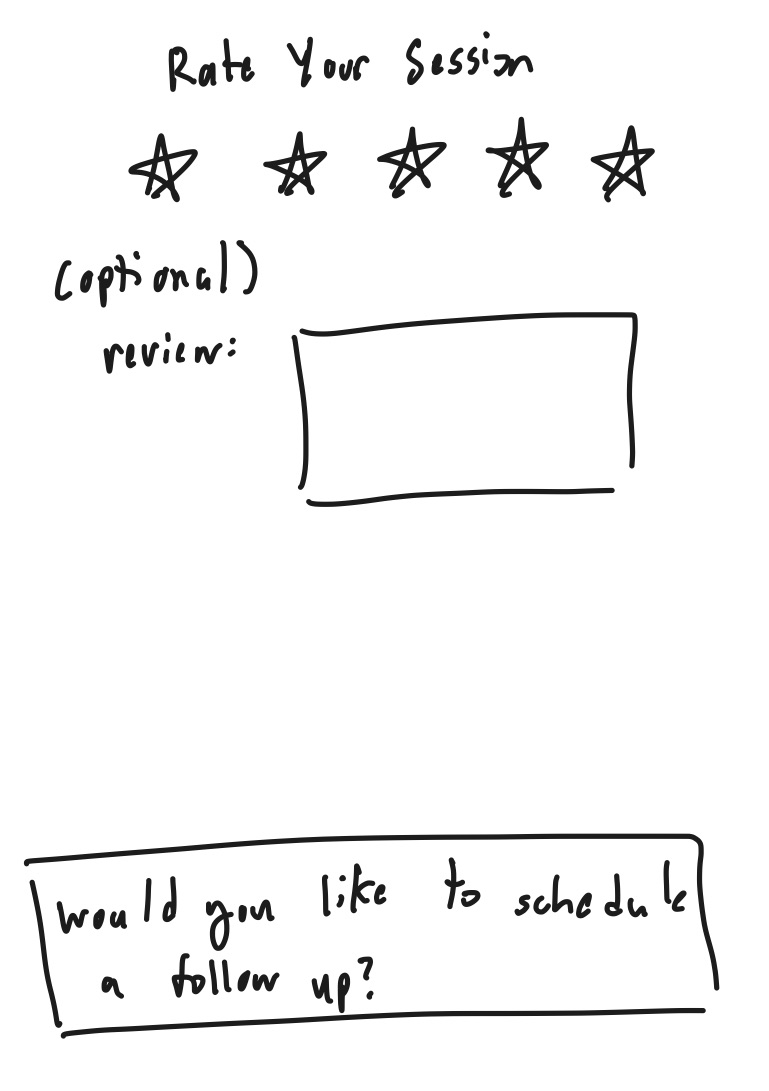 Rate Your Session
(optional)
review:
would you like to schedule
a follow up?